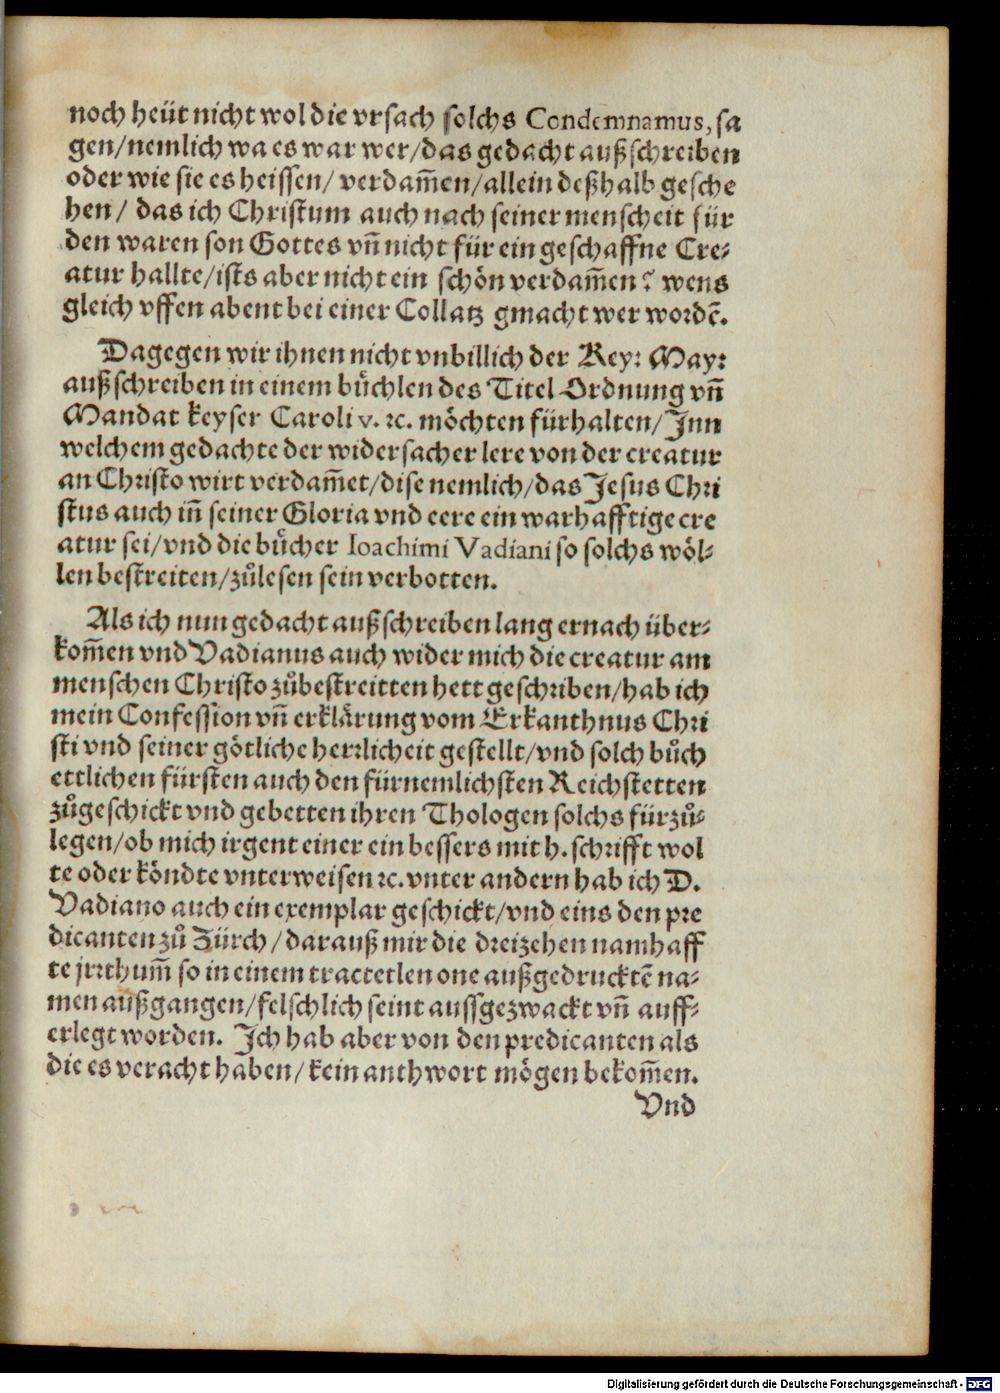 noch heüt nicht wol die vrsach solchs Condemnamus, sa
gen/nemlich wa es war wer/das gedacht außschreiben
oder wie sie es heissen/ verdam̃en/allein deßhalb gesche
hen/ das ich Christum auch nach seiner menscheit für
den waren son Gottes vñ nicht für ein geschaffne Cre⸗
atur hallte/ists aber nicht ein schön verdam̃en? wens
gleich vffen abent bei einer Collatz gmacht wer wordẽ.
Dagegen wir ihnen nicht vnbillich der Key: May:
außschreiben in einem bůchlen des Titel Ordnung vñ
Mandat keyser Caroli v. ꝛc. möchten fürhalten/Jnn
welchem gedachte der widersacher lere von der creatur
an Christo wirt verdam̃et/dise nemlich/das Jesus Chri
stus auch iñ seiner Gloria vnd eere ein warhafftige cre
atur sei/vnd die bůcher Ioachimi Vadiani so solchs wöl⸗
len bestreiten/zůlesen sein verbotten.
Als ich nun gedacht außschreiben lang ernach über⸗
kom̃en vnd Vadianus auch wider mich die creatur am
menschen Christo zůbestreitten hett geschriben/hab ich
mein Confession vñ erklärung vom Erkanthnus Chri
sti vnd seiner götliche herrlicheit gestellt/vnd solch bůch
ettlichen fürsten auch den fürnemlichsten Reichstetten
zůgeschickt vnd gebetten ihren Thologen solchs fürzů⸗
legen/ob mich irgent einer ein bessers mit h. schrifft wol
te oder köndte vnterweisen ꝛc. vnter andern hab ich D.
Vadiano auch ein exemplar geschickt/vnd eins den pre
dicanten zů Zürch/darauß mir die dreizehen namhaff
te jrrthum̃ so in einem tractetlen one außgedrucktẽ na⸗
men außgangen/felschlich seint aussgezwackt vñ auff⸗
erlegt worden. Jch hab aber von den predicanten als
die es veracht haben/kein anthwort mögen bekom̃en.
Vnd
Digitalisierung gefördert durch die Deutsche Forschungsgemeinschaft - DFG